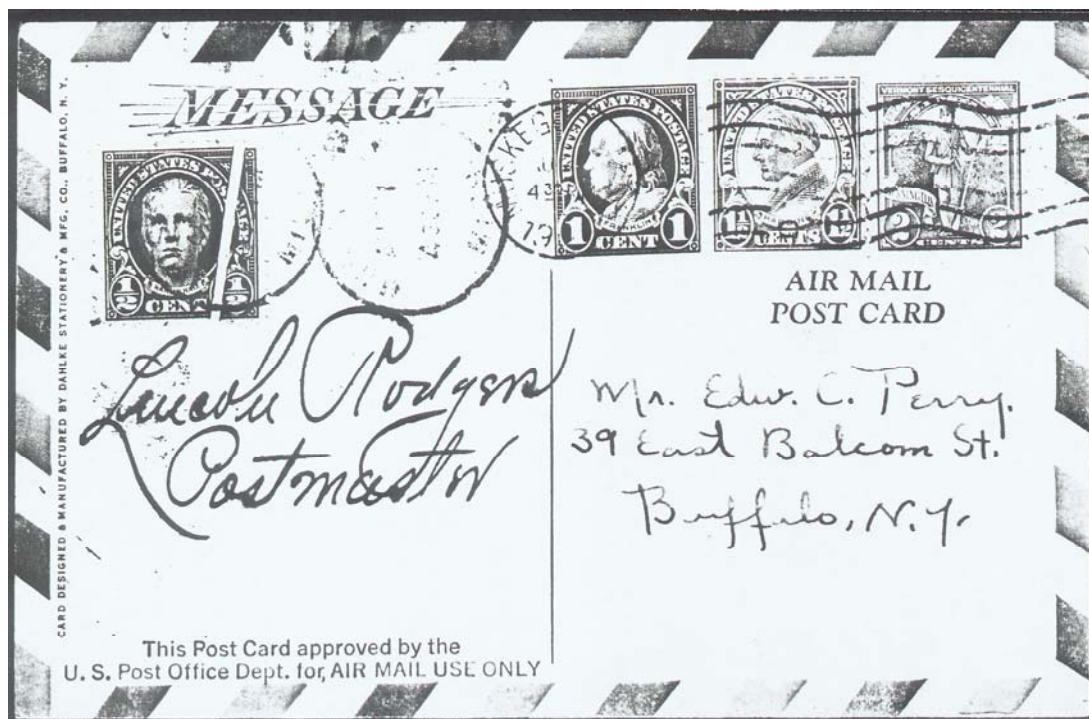 CARD DESIGNED & MANUFACTURED BY DAHLKE STATIONERY & MFG. CO., BUFFALO, N. Y.
MESSAGE
UNITED STATES POS
1/2 CENT 1/2
UNITED STATES POSTAGE
FRANKLIN
1 CENT 1
CENTS
VERMONT SESQUICENTENNIAL
2 CENTS 2
AIR MAIL
POST CARD
Lincoln Rodgers
Postmaster
Mr. Edw. C. Perry.
39 East Balcom St.
Buffalo, N.Y.
This Post Card approved by the
U. S. Post Office Dept. for AIR MAIL USE ONLY